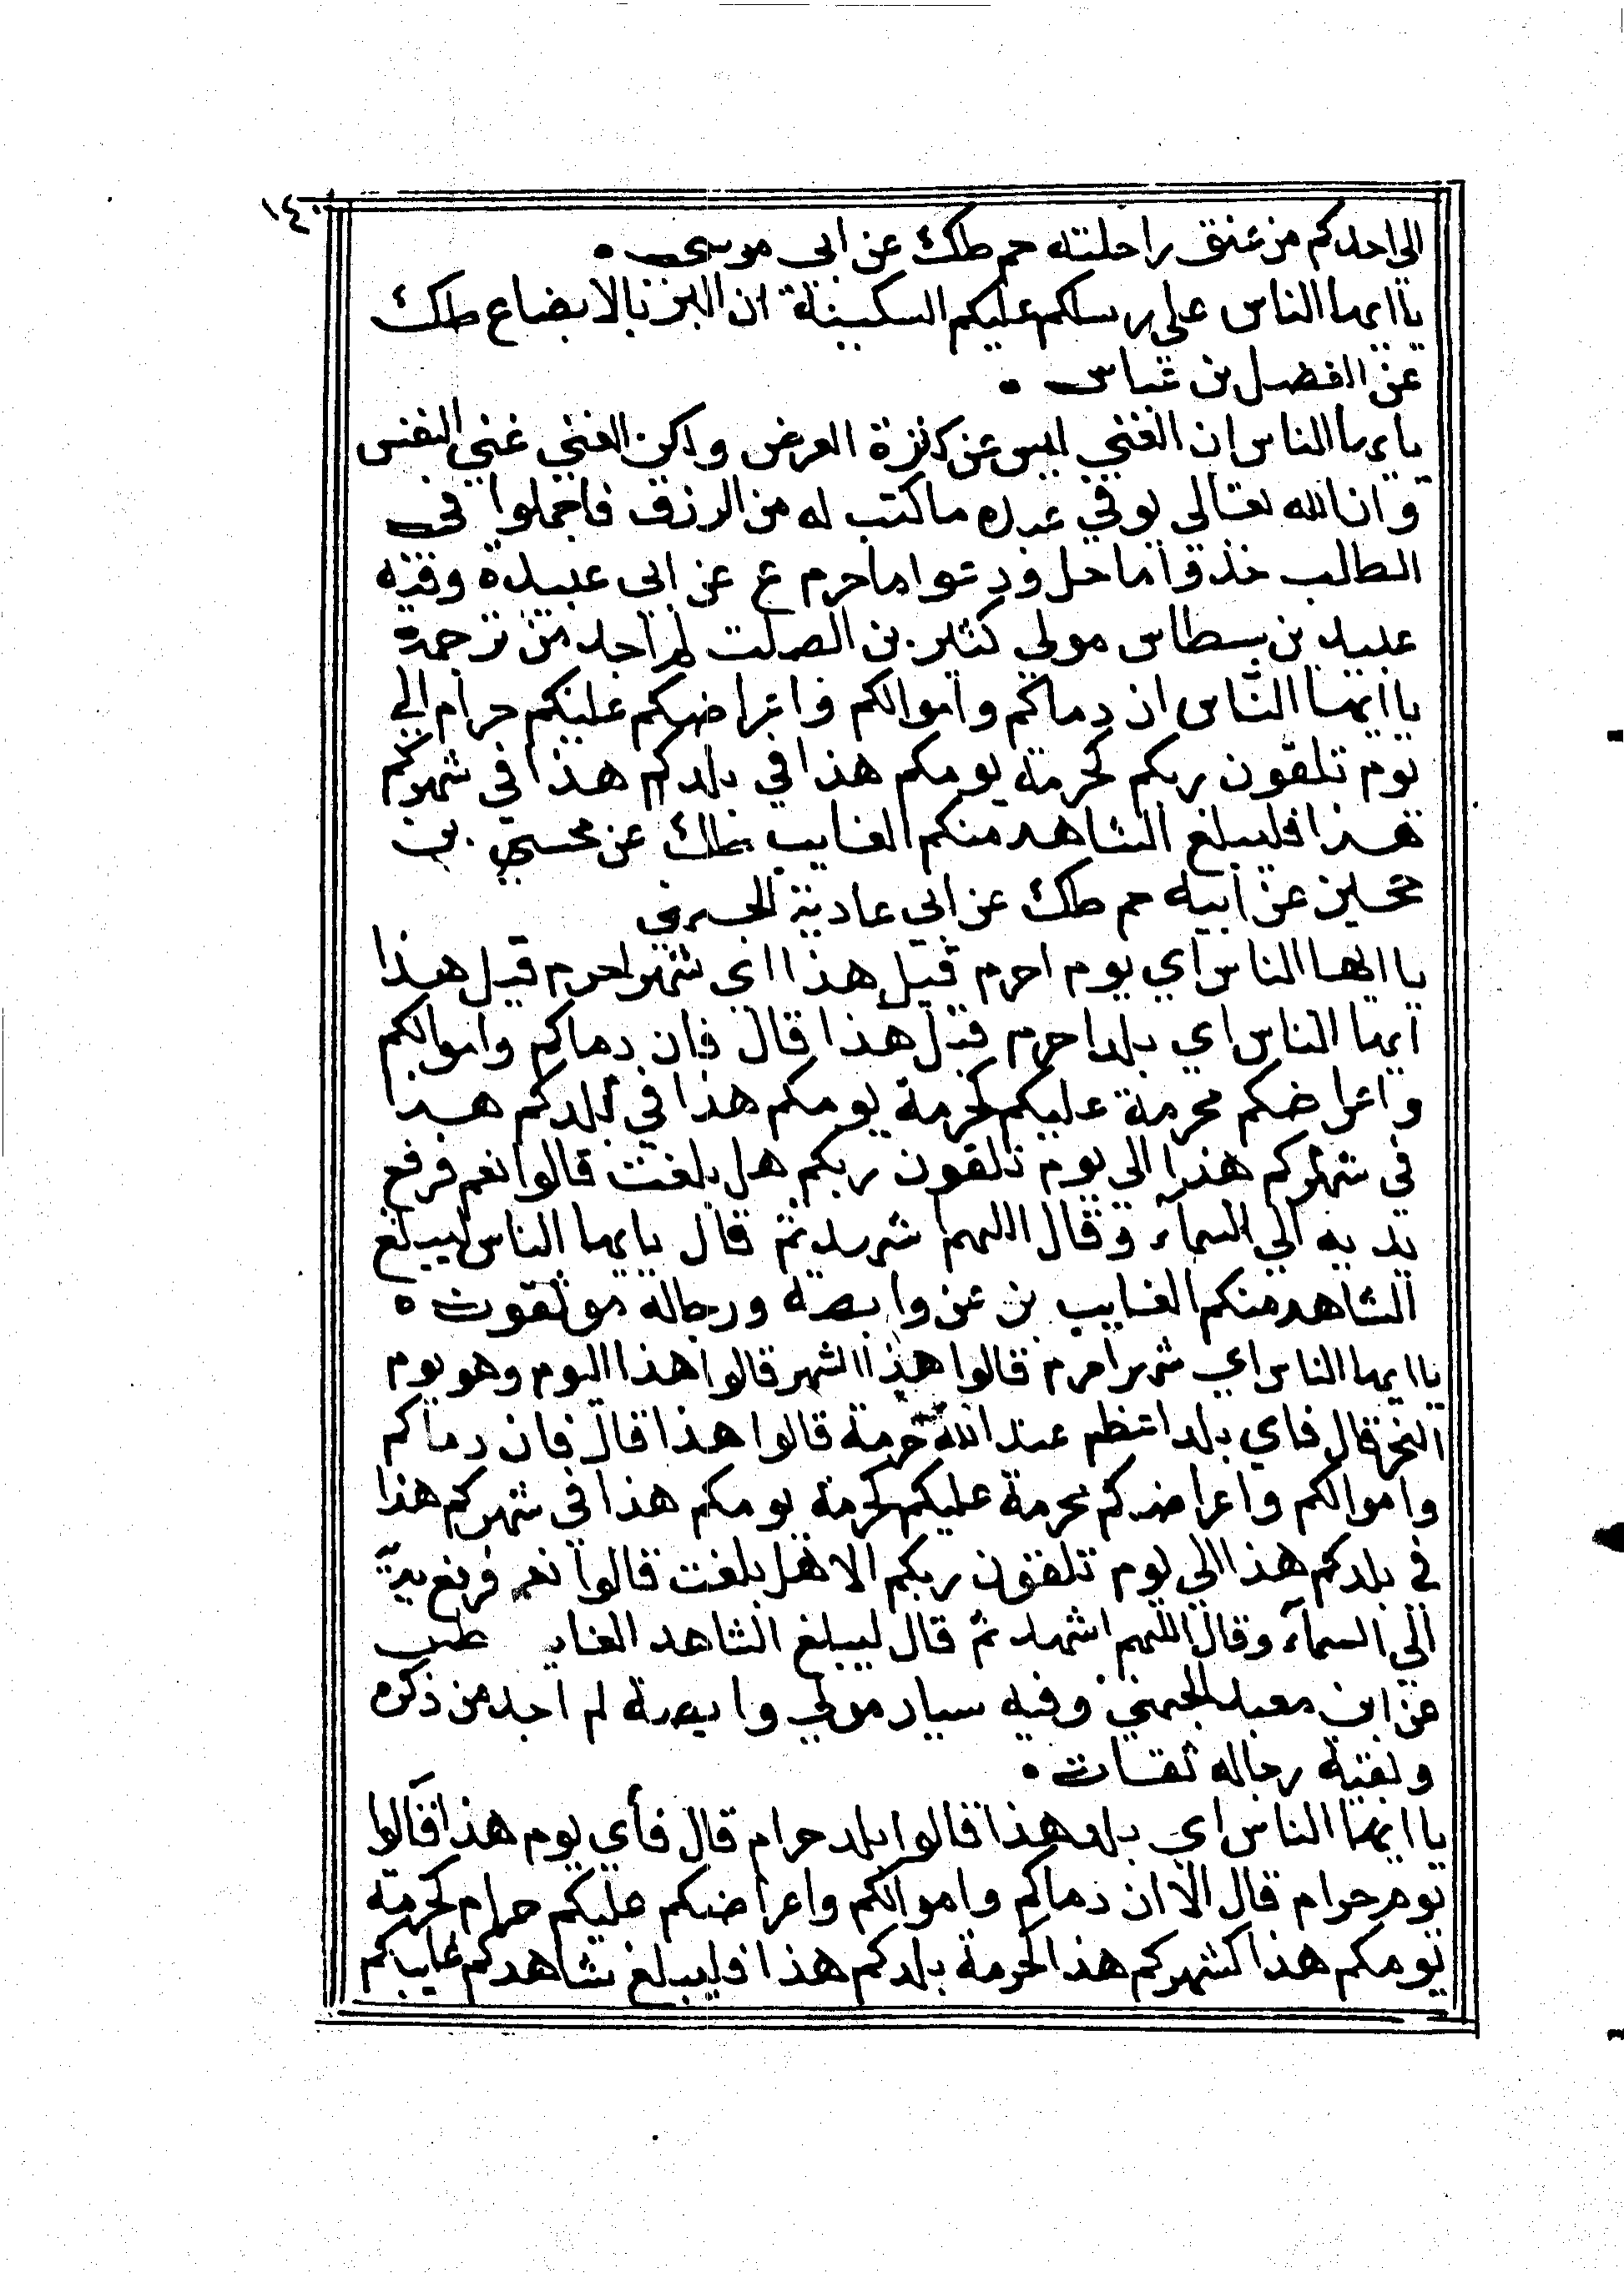 ١٤٠
الى احدكم من عنق راحلته حم طك عن ابى موسى ٠
يا ايها الناس على رسلكم عليكم السكينة ان البر بالايضاع طك
عن الفضل بن عباس ٠
يايها الناس ان الغني ليس عن كثرة العرض ولكن الغني غني النفس
وان الله تعالى يوفي عبده ما كتب له من الرزق فاجملوا في
الطلب خذوا ما حل ودعوا ما حرم ع عن ابي عبيدة وفيه
عبيد بن بسطاس مولى كثير بن الصلت لم اجد من ترجمه
يا ايها الناس ان دماكم واموالكم واعراضكم عليكم حرام الي
يوم تلقون ربكم كحرمة يومكم هذا في بلدكم هذا في شهركم
هذا فليبلغ الشاهد منكم الغايب طك عن بن
عن ابيه حم طك عن ابي عادية الجهني
يا ايها الناس اي يوم احرم قيل هذا اى شهر احرم قيل هذا
ايها الناس اي بلد احرم قيل هذا قال فان دماكم واموالكم
واعراضكم محرمة عليكم كحرمة يومكم هذا في بلدكم هذا
في شهركم هذا الى يوم تلقون ربكم هل بلغت قالوا نعم فرفع
يديه الي السمآء وقال اللهم اشهد ثم قال يايها الناس ليبلغ
الشاهد منكم الغايب بن عن وابصة ورجاله موثقون ٥
يا ايها الناس اي شهر احرم قالوا هذا الشهر قالوا هذا اليوم وهو يوم
النحر قال فاي بلد اعظم عند الله حرمة قالوا هذا قال فان دماكم
واموالكم واعراضكم محرمة عليكم كحرمة يومكم هذا في شهركم هذا
في بلدكم هذا الي يوم تلقون ربكم الا هل بلغت قالوا نعم فرفع يديه
الي السمآء وقال اللهم اشهد ثم قال ليبلغ الشاهد الغايب طب
عن ابن معبد الجهني وفيه سيار مولى وابصة لم اجد من ذكره
وبقية رجاله ثقات ٠
يا ايها الناس اي بلد هذا قالوا بلد حرام قال فأي يوم هذا قالوا
يوم حرام قال الا ان دماكم واموالكم واعراضكم عليكم حرام كحرمة
يومكم هذا كشهركم هذا كحرمة بلدكم هذا فليبلغ شاهدكم غايبكم